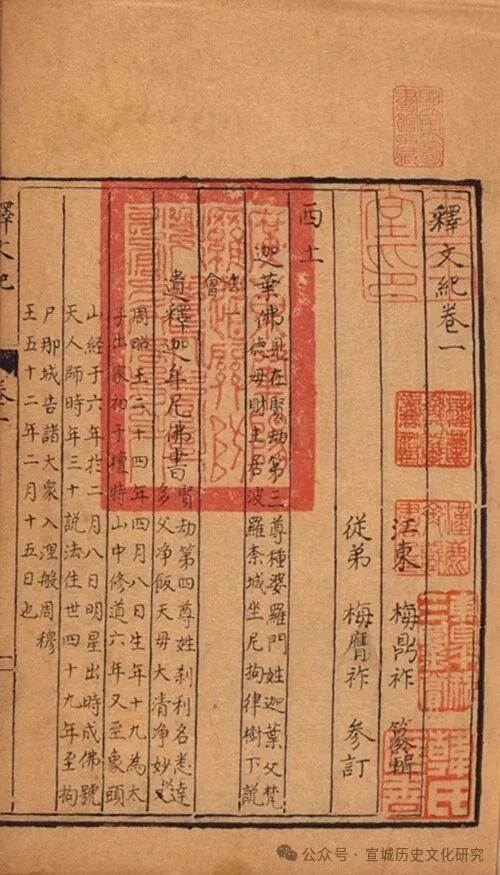 釋文紀卷一
江東 梅鼎祚 纂輯
從弟 梅膺祚 參訂
西土
迦葉佛
見在賢劫第三尊種婆羅門姓迦葉父梵
德母財主居波羅柰城坐尼拘律樹下說
法一
會
遺釋迦牟尼佛書
賢劫第四尊姓刹利名悉達
多父淨飯天母大清淨妙
周昭王二十四年四月八日生年十九為太
子出家初于檀特山中修道六年又至象頭
山經于六年於二月八日明星出時成佛號
天人師時年三十說法住世四十九年至拘
尸那城告諸大衆入湼般周穆
王五十二年二月十五日也
釋文紀
卷一
一
公众号 · 宣城历史文化研究